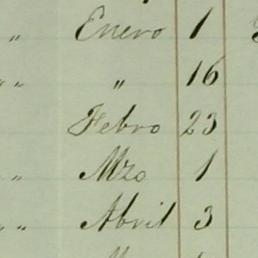 „ Enero 1
„ „ 16
Febro 23
„ Mzo 1
„ Abril 3